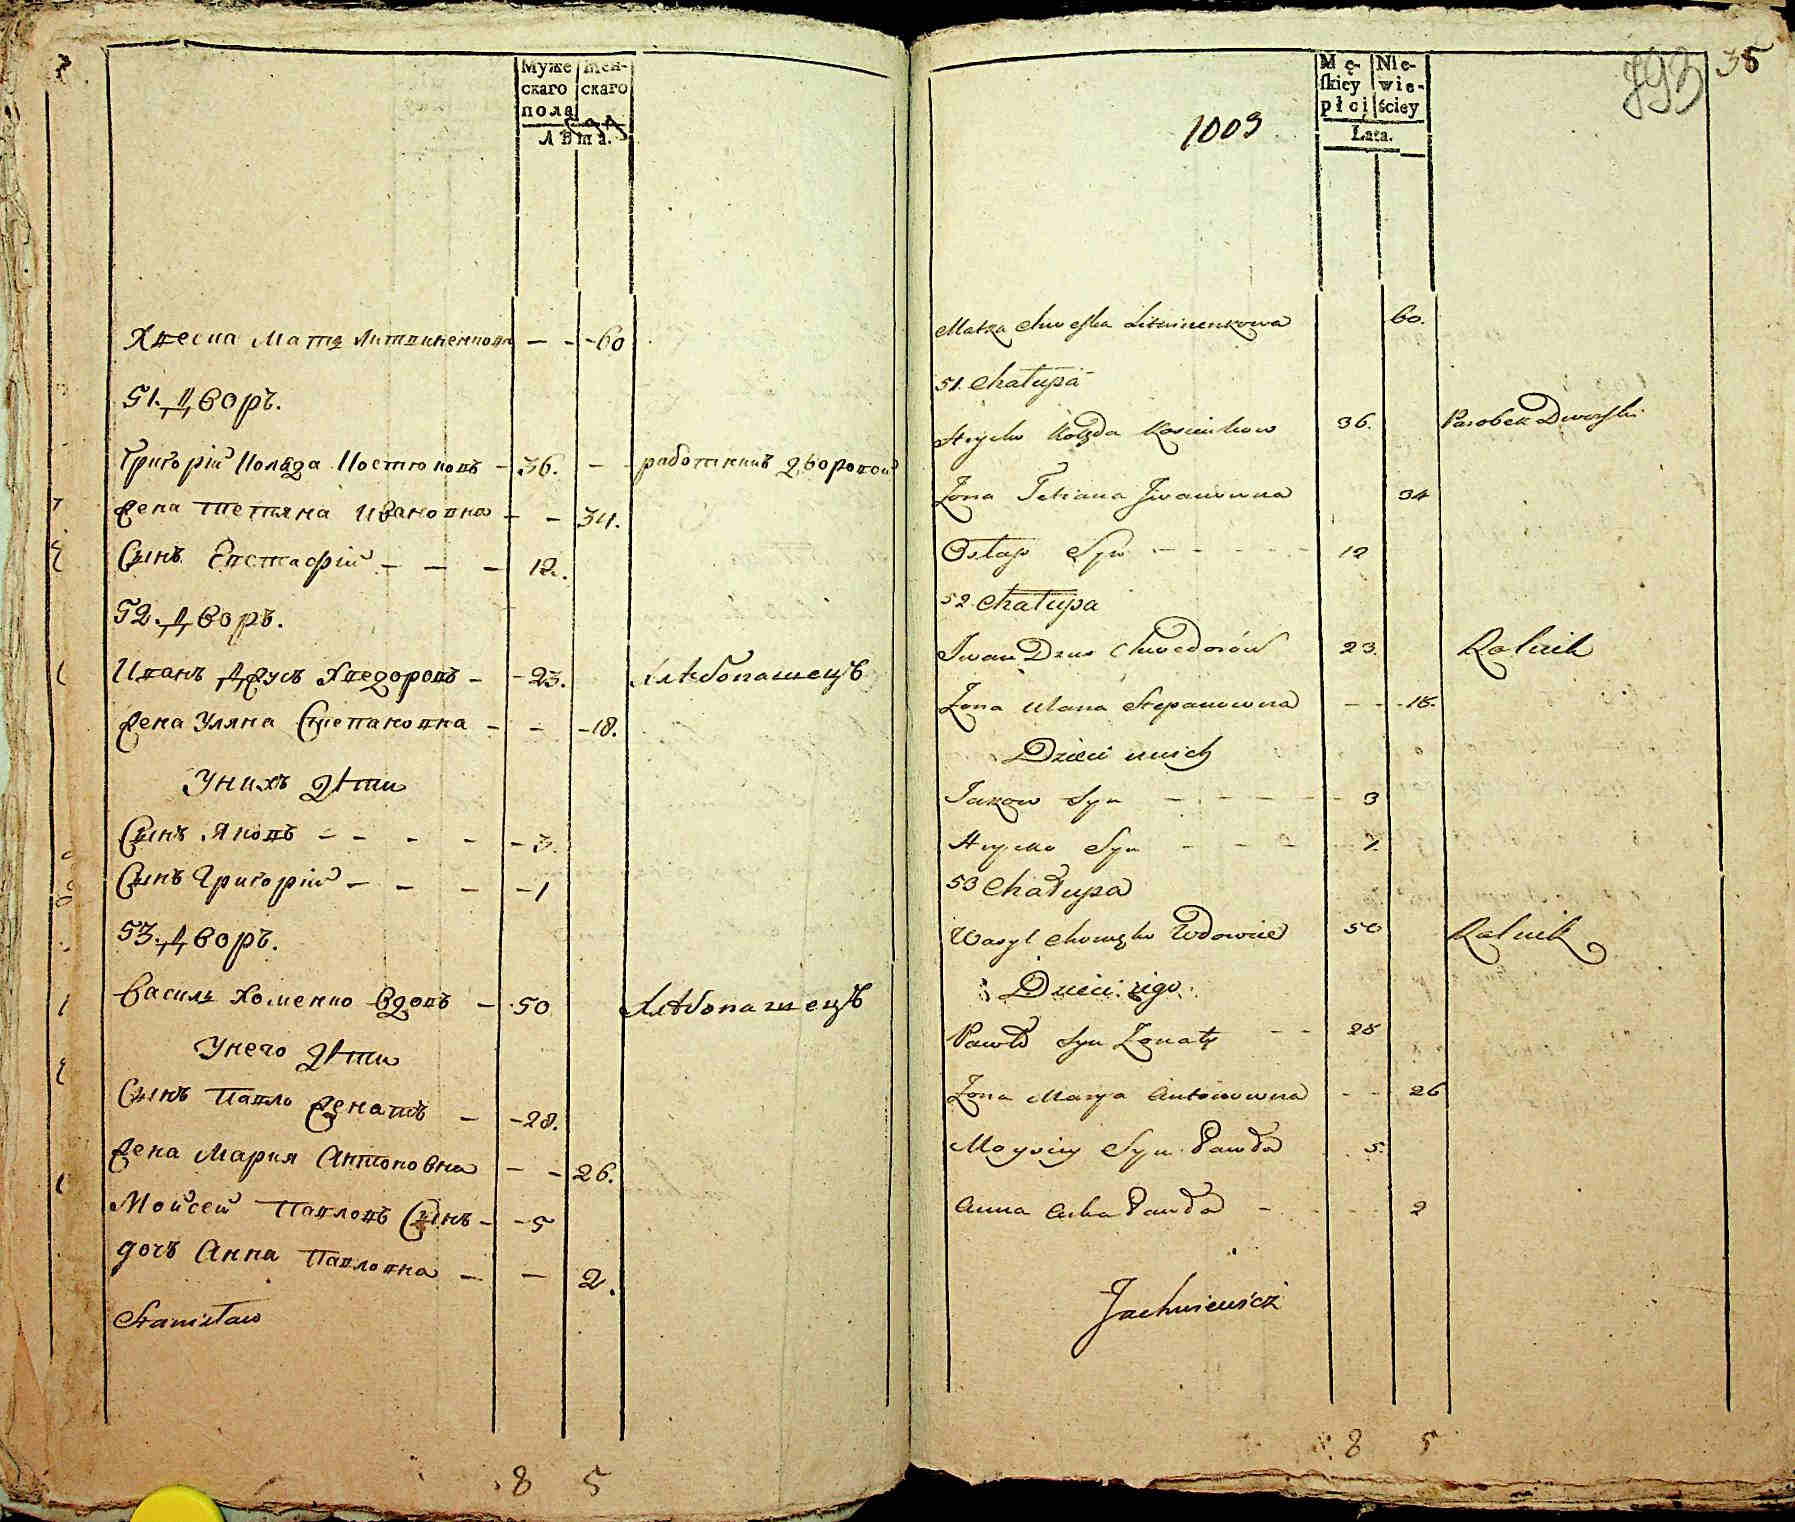 Муже
скаго
пола
Жен-
скаго
Лѣта.
Хвесна Мать Литвиненкова – – 60
51. Дворъ.
Григорій Коляда Костюковъ – 36. – – работникъ дворовой
Жена Тетяна Ивановна – – 34.
Сынъ Евстафій – – – 12.
52. Дворъ.
Иванъ Дзусъ Хведоровъ – – 23. Хлѣбопашецъ
Жена Уляна Степановна – – – 18.
У нихъ дѣти
Сынъ Яковъ – – – – – 3.
Сынъ Григорій – – – – 1
53. Дворъ.
Василь Хоменко Вдовъ – 50 Хлѣбопашецъ
У него дѣти
Сынъ Павло Женатъ – – 28.
Жена Мария Антоновна – – 26.
Мойсей Павловъ Сынъ – – 5
дочъ Анна Павловна – – 2.
Stanisław
8 5
35
793
1009
Mę-
skiey
płci
Nie-
wie-
ściey
Lata.
Matka Chweska Litwinenkowa 60.
51. Chałupa
Hryćko Kolęda Kosciukow 36. Parobek Dworski
Żona Tetiana Iwanowna 34
Ostap Syn – – – – 12
52 Chałupa
Iwan Dzus Chwedorów 23. Rolnik
Żona Ulana Stepanowna – – 18.
Dzieci u nich
Jakow Syn – – – – – 3
Hryćko Syn – – – 1.
53 Chałupa
Wasyl Chomęko Wdowiec 50 Rolnik
Dzieci iego
Pawło Syn Żonaty – – 28
Żona Marya Antonowna – – 26
Moysiey Syn Pawła 5.
Anna Curka Pawła – – – 2
Jachniewicz
8 5